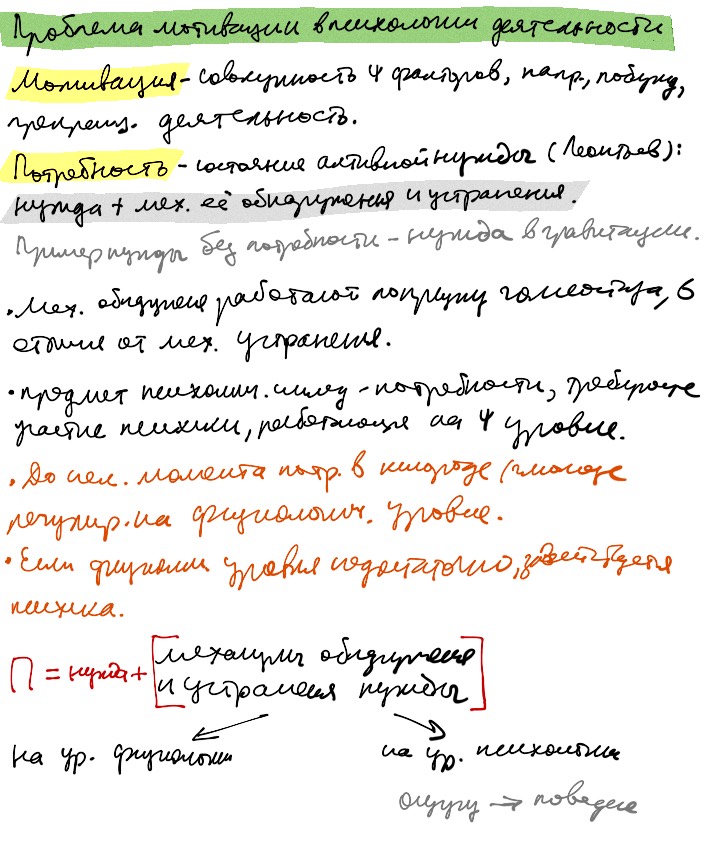 Проблема мотивации в психологии деятельности
Мотивация - совокупность ψ факторов, напр., побужд,
прекращ. деятельность.
Потребность - состояние активной нужды (Леонтьев):
нужда + мех. её обнаружения и устранения.
Пример нужды без потребности - нужда в гравитации.
• Мех. обнаружения работают по принципу гомеостаза, в
отличие от мех. устранения.
• предмет психолич. исслед - потребности, требующие
участие психики, работающие на ψ уровне.
• До нек. момента потр. в кислороде / глюкозе
регулир. на физиологич. уровне.
• Если физиологии уровня недостаточно, задействуется
психика.
П = нужда + [механизмы обнаружения
и устранения нужды]
на ур. физиологии на ур. психологии
ощущ → поведение